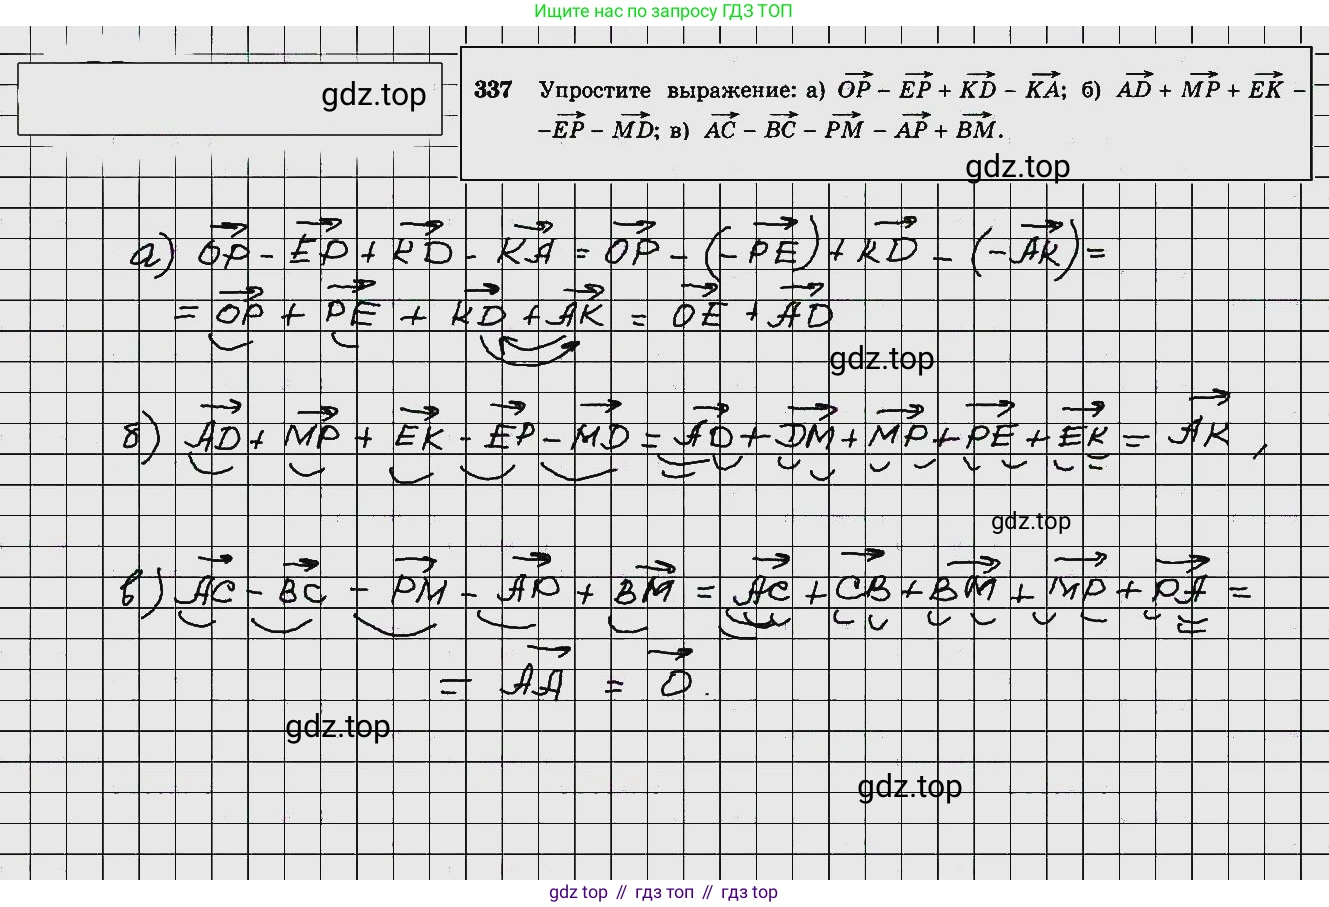 Ищите нас по запросу ГДЗ ТОП
gdz.top
337 Упростите выражение: а) OP – EP + KD – KA; б) AD + MP + EK –
–EP – MD; в) AC – BC – PM – AP + BM.
gdz.top
а) OP - EP + KD - KA = OP - (-PE) + KD - (-AK) =
= OP + PE + KD + AK = OE + AD
gdz.top
б) AD + MP + EK - EP - MD = AD + DM + MP + PE + EK = AK,
gdz.top
в) AC - BC - PM - AP + BM = AC + CB + BM + MP + PA =
= AA = O.
gdz.top
gdz.top
gdz top // гдз топ // gdz top